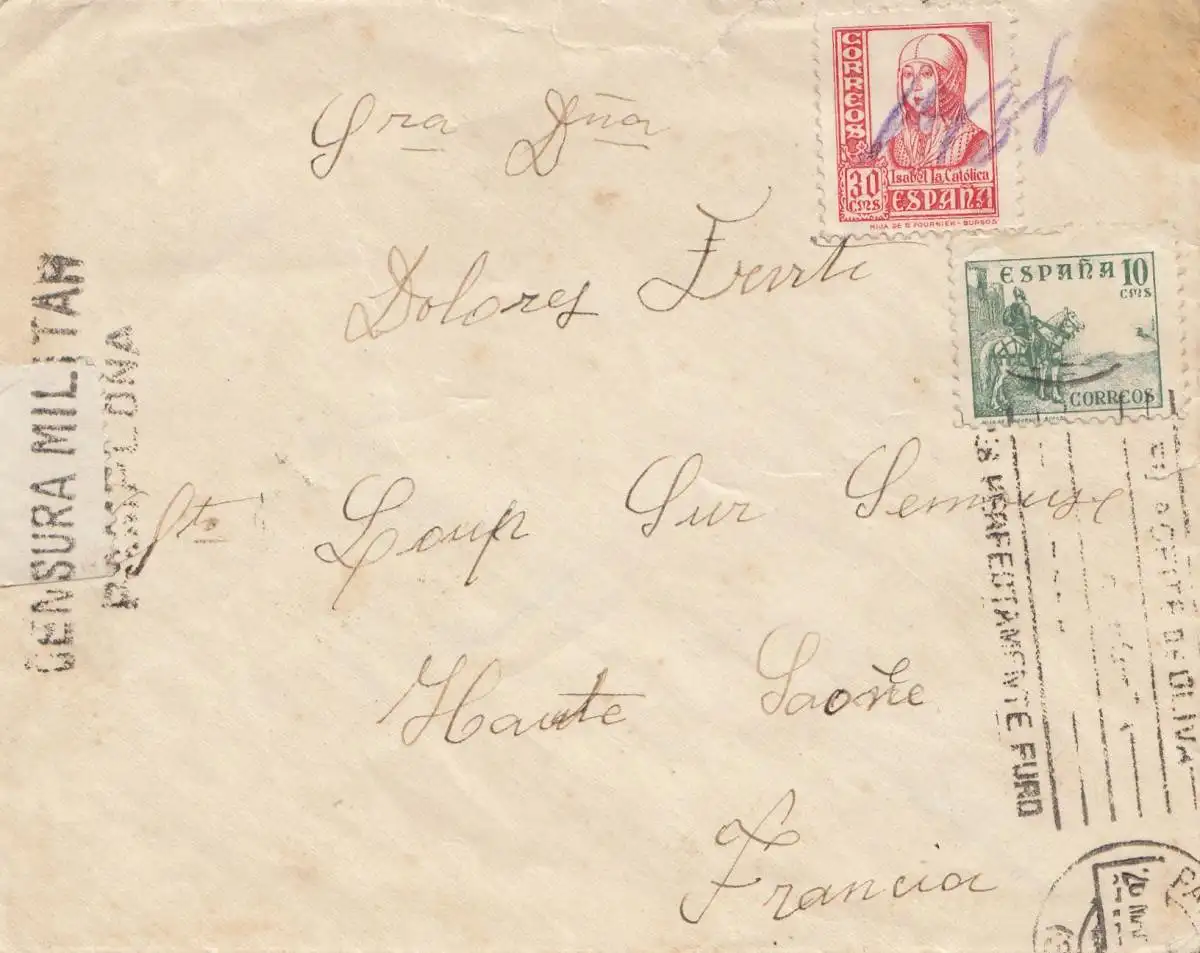 CORREOS
30 CMS
Isabel la Católica
ESPAÑA
HIJA DE B. FOURNIER - BURGOS
ESPAÑA 10 CMS
CORREOS
Sra Dña
Dolores
CENSURA MILITAR
PAMPLONA
Sto Loup Sur Semouse
Haute Saone
Francia
ACEITE DE OLIVA
PERFECTAMENTE PURO